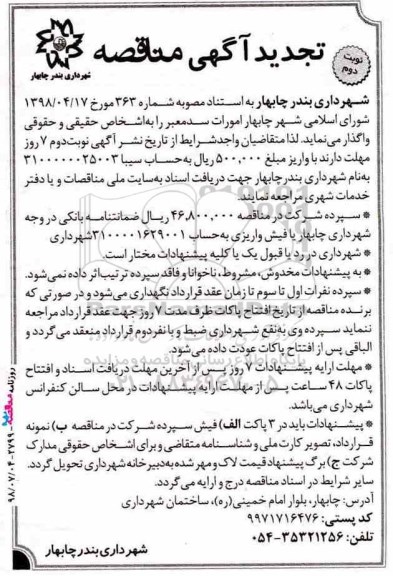 تجدید آگهی مناقصه
نوبت دوم
شهرداری بندر چابهار
شهرداری بندر چابهار به استناد مصوبه شماره ۳۶۳ مورخ ۱۳۹۸/۰۴/۱۷
شورای اسلامی شهر چابهار امورات سدمعبر را به‌اشخاص حقیقی و حقوقی
واگذار می‌نماید. لذا متقاضیان واجدشرایط از تاریخ نشر آگهی نوبت‌دوم ۷ روز
مهلت دارند با واریز مبلغ ۵۰۰,۰۰۰ ریال به‌حساب سیبا ۳۱۰۰۰۰۰۰۲۵۰۰۳
به‌نام شهرداری بندرچابهار جهت دریافت اسناد به‌سایت ملی مناقصات و یا دفتر
خدمات شهری مراجعه نمایند.
* سپرده شرکت در مناقصه ۴۶,۸۰۰,۰۰۰ ریال ضمانتنامه بانکی در وجه
شهرداری چابهار یا فیش واریزی به‌حساب ۳۱۰۰۰۰۱۶۲۹۰۰۱ شهرداری
* شهرداری در رد یا قبول یک یا کلیه پیشنهادات مختار است.
* به پیشنهادات مخدوش، مشروط، ناخوانا و فاقد سپرده ترتیب اثر داده نمی‌شود.
* سپرده نفرات اول تا سوم تا زمان عقد قرارداد نگهداری می‌شود و در صورتی که
برنده مناقصه از تاریخ افتتاح پاکات ظرف مدت ۷ روز جهت عقد قرارداد مراجعه
ننماید سپرده وی به‌نفع شهرداری ضبط و با نفر دوم قرارداد منعقد می‌گردد و
الباقی پس از افتتاح پاکات عودت داده می‌شود.
* مهلت ارایه پیشنهادات ۷ روز پس از آخرین مهلت دریافت اسناد و افتتاح
پاکات ۴۸ ساعت پس از مهلت ارایه پیشنهادات در محل سالن کنفرانس
شهرداری می‌باشد.
* پیشنهادات باید در ۳ پاکت الف) فیش سپرده شرکت در مناقصه ب) نمونه
قرارداد، تصویر کارت ملی و شناسنامه متقاضی و برای اشخاص حقوقی مدارک
شرکت ج) برگ پیشنهاد قیمت لاک و مهر شده به‌دبیرخانه شهرداری تحویل گردد.
سایر شرایط در اسناد مناقصه درج و ارایه می‌گردد.
آدرس: چابهار، بلوار امام خمینی(ره)، ساختمان شهرداری
کد پستی: ۹۹۷۱۷۱۶۴۷۶
تلفن: ۳۵۳۲۱۲۵۶-۰۵۴
شهرداری بندر چابهار
روزنامه مناقصه ۲۷۹۹-۹۸/۰۷/۰۴